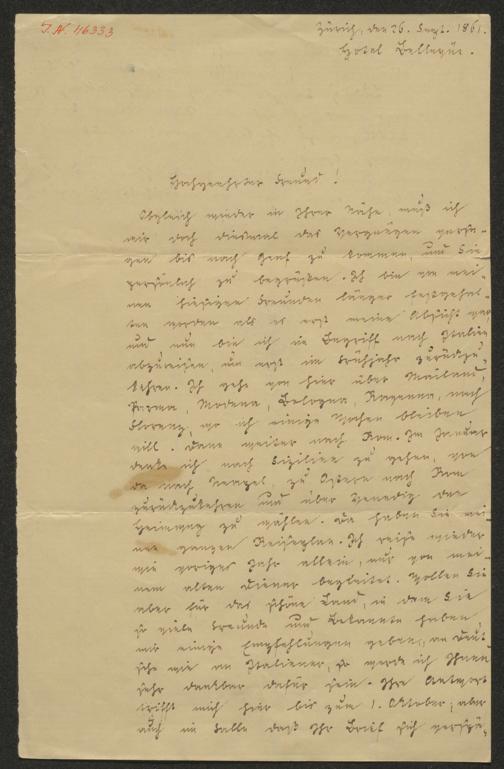 I. N. 46333
Zürich, den 26. Sept. 1861.
Hotel Bellevüe.
Hochgeehrter Freund!
Obgleich wieder in Ihrer Nähe, muß ich
mir doch diesmal das Vergnügen versa-
gen bis nach Genf zu kommen, und Sie
persönlich zu begrüßen. Ich bin von mei-
nen hiesigen Freunden länger festgehal-
ten worden als es erst meine Absicht war
und nun bin ich im Begriff nach Italien
abzureisen, um erst im Frühjahr zurückzu-
kehren. Ich gehe von hier über Mailand,
Parma, Modena, Bologna, Ravenna, nach
Florenz, wo ich einige Wochen bleiben
will. Dann weiter nach Rom. Im Januar
denke ich nach Sizilien zu gehen, von
da nach Neapel, zu Ostern nach Rom
zurückzukehren und über Venedig den
Heimweg zu wählen. Da haben Sie mei-
nen ganzen Reiseplan. Ich reise wieder
wie voriges Jahr allein, nur von mei-
nem alten Diener begleitet. Wollen Sie
aber für das schöne Land, in dem Sie
so viele Freunde und Bekannte haben,
mir einige Empfehlungen geben, an Deut-
sche wie an Italiener, so werde ich Ihnen
sehr dankbar dafür sein. Ihre Antwort
trifft mich hier bis zum 1. Oktober; aber
auch im Falle daß Ihr Brief sich verspä-